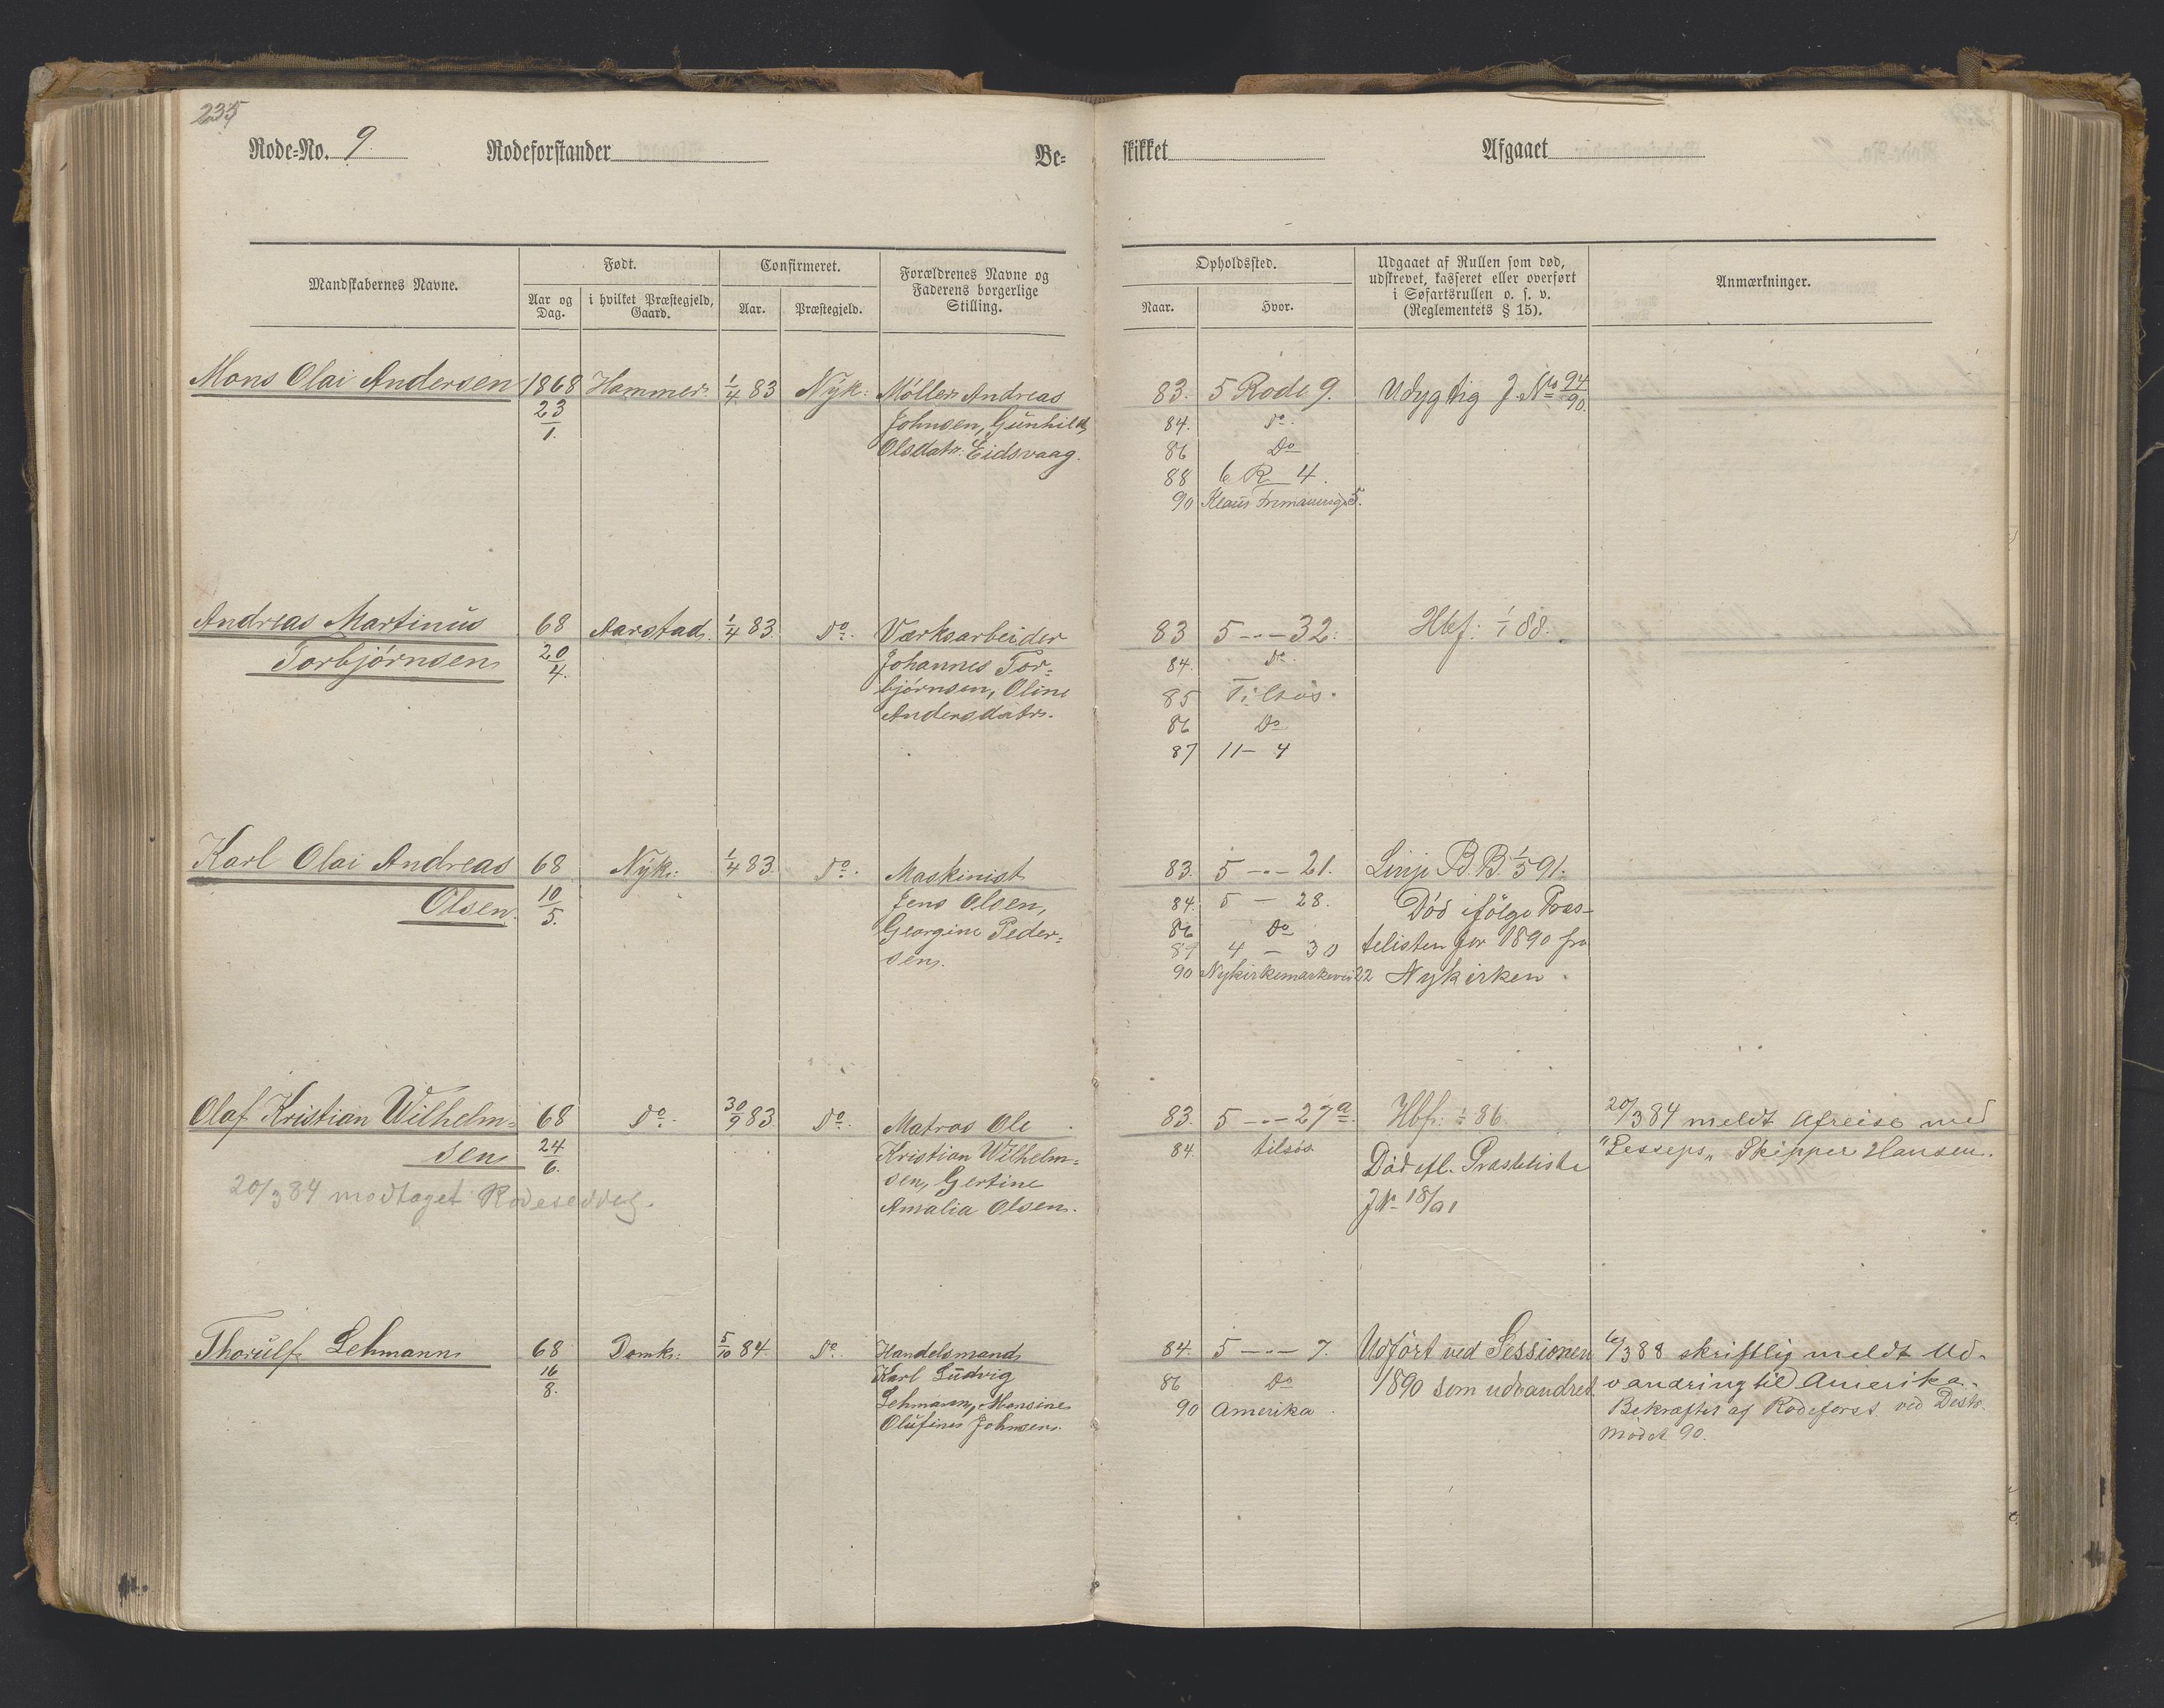 235
Rode-No. 9. Rodeforstander Be-
skikket Afgaaet
Mandskabernes Navne.
Født.
Aar og Dag.
i hvilket Præstegjeld, Gaard.
Confirmeret.
Aar.
Præstegjeld.
Forældrenes Navne og
Faderens borgerlige
Stilling.
Opholdssted.
Naar.
Hvor.
Udgaaet af Rullen som død,
udskrevet, kasseret eller overført
i Søfartsrullen o. s. v.
(Reglementets § 15).
Anmærkninger.
Mons Olai Andersen 1868 Hammer. 1/4 83 Nyk: Møller Andreas
23/1. Johnsen, Gunhild
Olsdatr. Eidsvaag.
83. 5 Rode 9. Udygtig J. No 94/90.
84. Do.
86 Do
88 6 R 4.
90 Klaus 5.
Andreas Martinus 68 Aarstad. 1/4 83. Do. Værksarbeider
Torbjørnsen 20/4. Johannes Tor-
bjørnsen, Oline
Andersdatr.
83 5 -"- 32. Hbf: 1/1 88.
84. Do.
85 Tilsøs.
86 Do
87 11 - 4
Karl Olai Andreas 68 Nyk: 1/4 83. Do. Maskinist
Olsen. 10/5. Jens Olsen,
Georgine Peder-
sen.
83. 5 -"- 21. Linje B. B. 1/5 91.
84. 5 - 28. Død ifølge Præs-
86 Do
89 4 - 30 telisten for 1890 fra
90 Nykirkemarkevei 22 Nykirken.
Olaf Kristian Wilhelm- 68 Do. 30/9 83 Do. Matros Ole
sen 24/6. Kristian Wilhelm-
20/3 84 modtaget Rodeseddel. sen, Gertine
Amalia Olsen.
83. 5 -"- 27a. Hbf. 1/1 86. 20/3 84 meldt Afreise med
84. tilsøs "Lesseps" Skipper Hansen.
Død efl. Præsteliste
J No 18/91
Thorulf Lehmann 68 Domk: 5/10 84. Do. Handelsmand
16/8. Karl Ludvig
Lehmann, Monsine
Olufine Johnsen.
84. 5 -"- 7. Udført ved Sessionen 6/3 88 skriftlig meldt Ud-
86 Do 1890 som udvandret vandring til Amerika.
90 Amerika. Bekræftet af Rodeforst. ved Distr.
mødet 90.